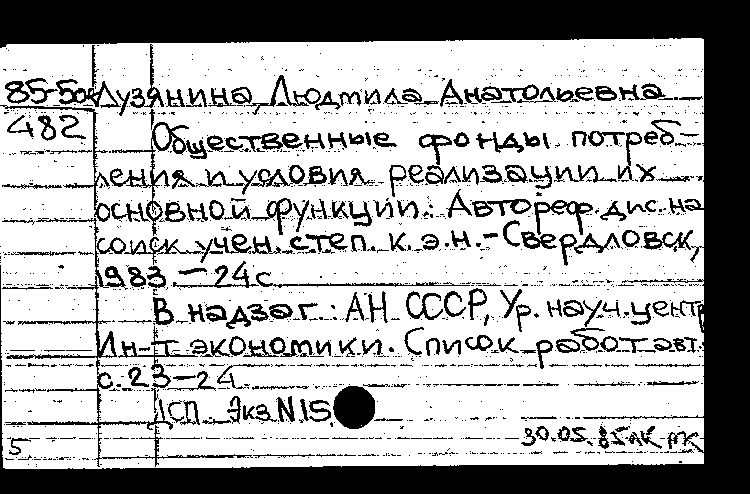 85-5ок Лузянина, Людмила Анатольевна
482 Общественные фонды потреб-
ления и условия реализации их
основной функции: Автореф. дис. на
соиск. учен. степ. к. э. н. - Свердловск,
1983. - 24 с.
В надзаг.: АН СССР, Ур. науч. центр
Ин-т экономики. Список работ авт.
с. 23-24
ДСП Экз N 15
30.05.85
5